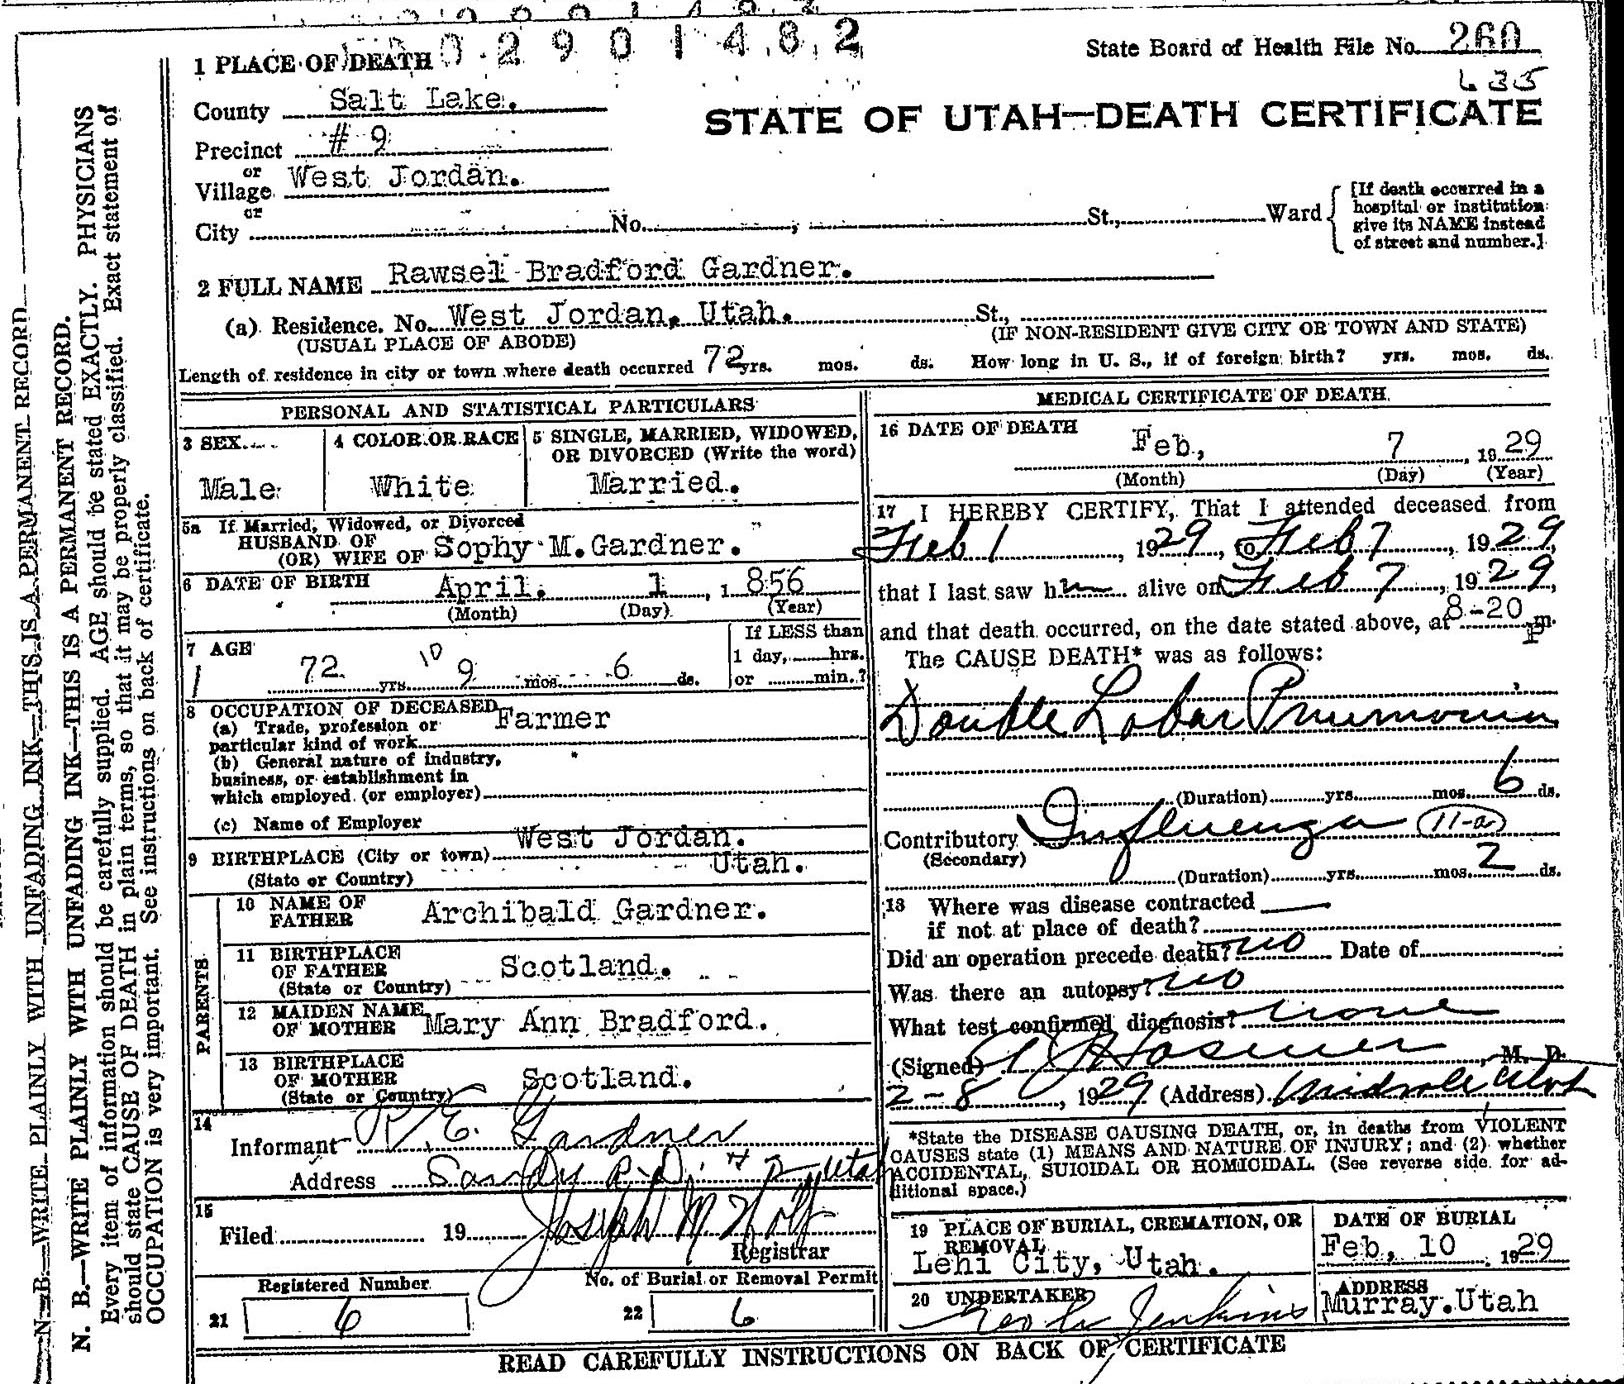 0 2 9 0 1 4 8 2
State Board of Health File No. 260
635
1 PLACE OF DEATH
County Salt Lake.
STATE OF UTAH—DEATH CERTIFICATE
Precinct # 9
or
Village West Jordan.
or
City No. St., Ward
[If death occurred in a
hospital or institution
give its NAME instead
of street and number.]
2 FULL NAME Rawsel Bradford Gardner.
(a) Residence. No. West Jordan, Utah. St.,
(USUAL PLACE OF ABODE) (IF NON-RESIDENT GIVE CITY OR TOWN AND STATE)
Length of residence in city or town where death occurred 72 yrs. mos. ds. How long in U. S., if of foreign birth? yrs. mos. ds.
PERSONAL AND STATISTICAL PARTICULARS
3 SEX
Male
4 COLOR OR RACE
White
5 SINGLE, MARRIED, WIDOWED,
OR DIVORCED (Write the word)
Married.
5a If Married, Widowed, or Divorced
HUSBAND OF
(OR) WIFE OF Sophy M. Gardner.
6 DATE OF BIRTH April. 1, 1856
(Month) (Day) (Year)
7 AGE
72 yrs 10 9 mos. 6 ds.
If LESS than
1 day, hrs.
or min.?
8 OCCUPATION OF DECEASED
(a) Trade, profession or Farmer
particular kind of work
(b) General nature of industry,
business, or establishment in
which employed (or employer)
(c) Name of Employer
9 BIRTHPLACE (City or town) West Jordan.
(State or Country) Utah.
PARENTS
10 NAME OF
FATHER Archibald Gardner.
11 BIRTHPLACE
OF FATHER Scotland.
(State or Country)
12 MAIDEN NAME
OF MOTHER Mary Ann Bradford.
13 BIRTHPLACE
OF MOTHER Scotland.
(State or Country)
14
Informant R. E. Gardner
Address Sandy R.D. # 2 Utah
15
Filed 19 Joseph M Holt
Registrar
Registered Number
21 6
No. of Burial or Removal Permit
22 6
MEDICAL CERTIFICATE OF DEATH
16 DATE OF DEATH
Feb, 7, 1929
(Month) (Day) (Year)
17 I HEREBY CERTIFY, That I attended deceased from
Feb 1, 1929, to Feb 7, 1929,
that I last saw him alive on Feb 7, 1929,
and that death occurred, on the date stated above, at 8-20 P m.
The CAUSE DEATH* was as follows:
Double Lobar Pneumonia
(Duration) yrs. mos. 6 ds.
Contributory Influenza (11-a)
(Secondary)
(Duration) yrs. mos. 2 ds.
18 Where was disease contracted
if not at place of death?
Did an operation precede death? no Date of
Was there an autopsy? no
What test confirmed diagnosis? None
(Signed) Hosmer, M. D.
2-8, 1929 (Address) Midvale Utah
*State the DISEASE CAUSING DEATH, or, in deaths from VIOLENT
CAUSES state (1) MEANS AND NATURE OF INJURY; and (2) whether
ACCIDENTAL, SUICIDAL OR HOMICIDAL. (See reverse side for ad-
ditional space.)
19 PLACE OF BURIAL, CREMATION, OR
REMOVAL
Lehi City, Utah.
DATE OF BURIAL
Feb, 10 1929
20 UNDERTAKER
Jenkins
ADDRESS
Murray. Utah
READ CAREFULLY INSTRUCTIONS ON BACK OF CERTIFICATE
N. B.—WRITE PLAINLY WITH UNFADING INK—THIS IS A PERMANENT RECORD
N. B.—WRITE PLAINLY WITH UNFADING INK—THIS IS A PERMANENT RECORD.
Every item of information should be carefully supplied. AGE should be stated EXACTLY. PHYSICIANS
should state CAUSE OF DEATH in plain terms, so that it may be properly classified. Exact statement of
OCCUPATION is very important. See instructions on back of certificate.